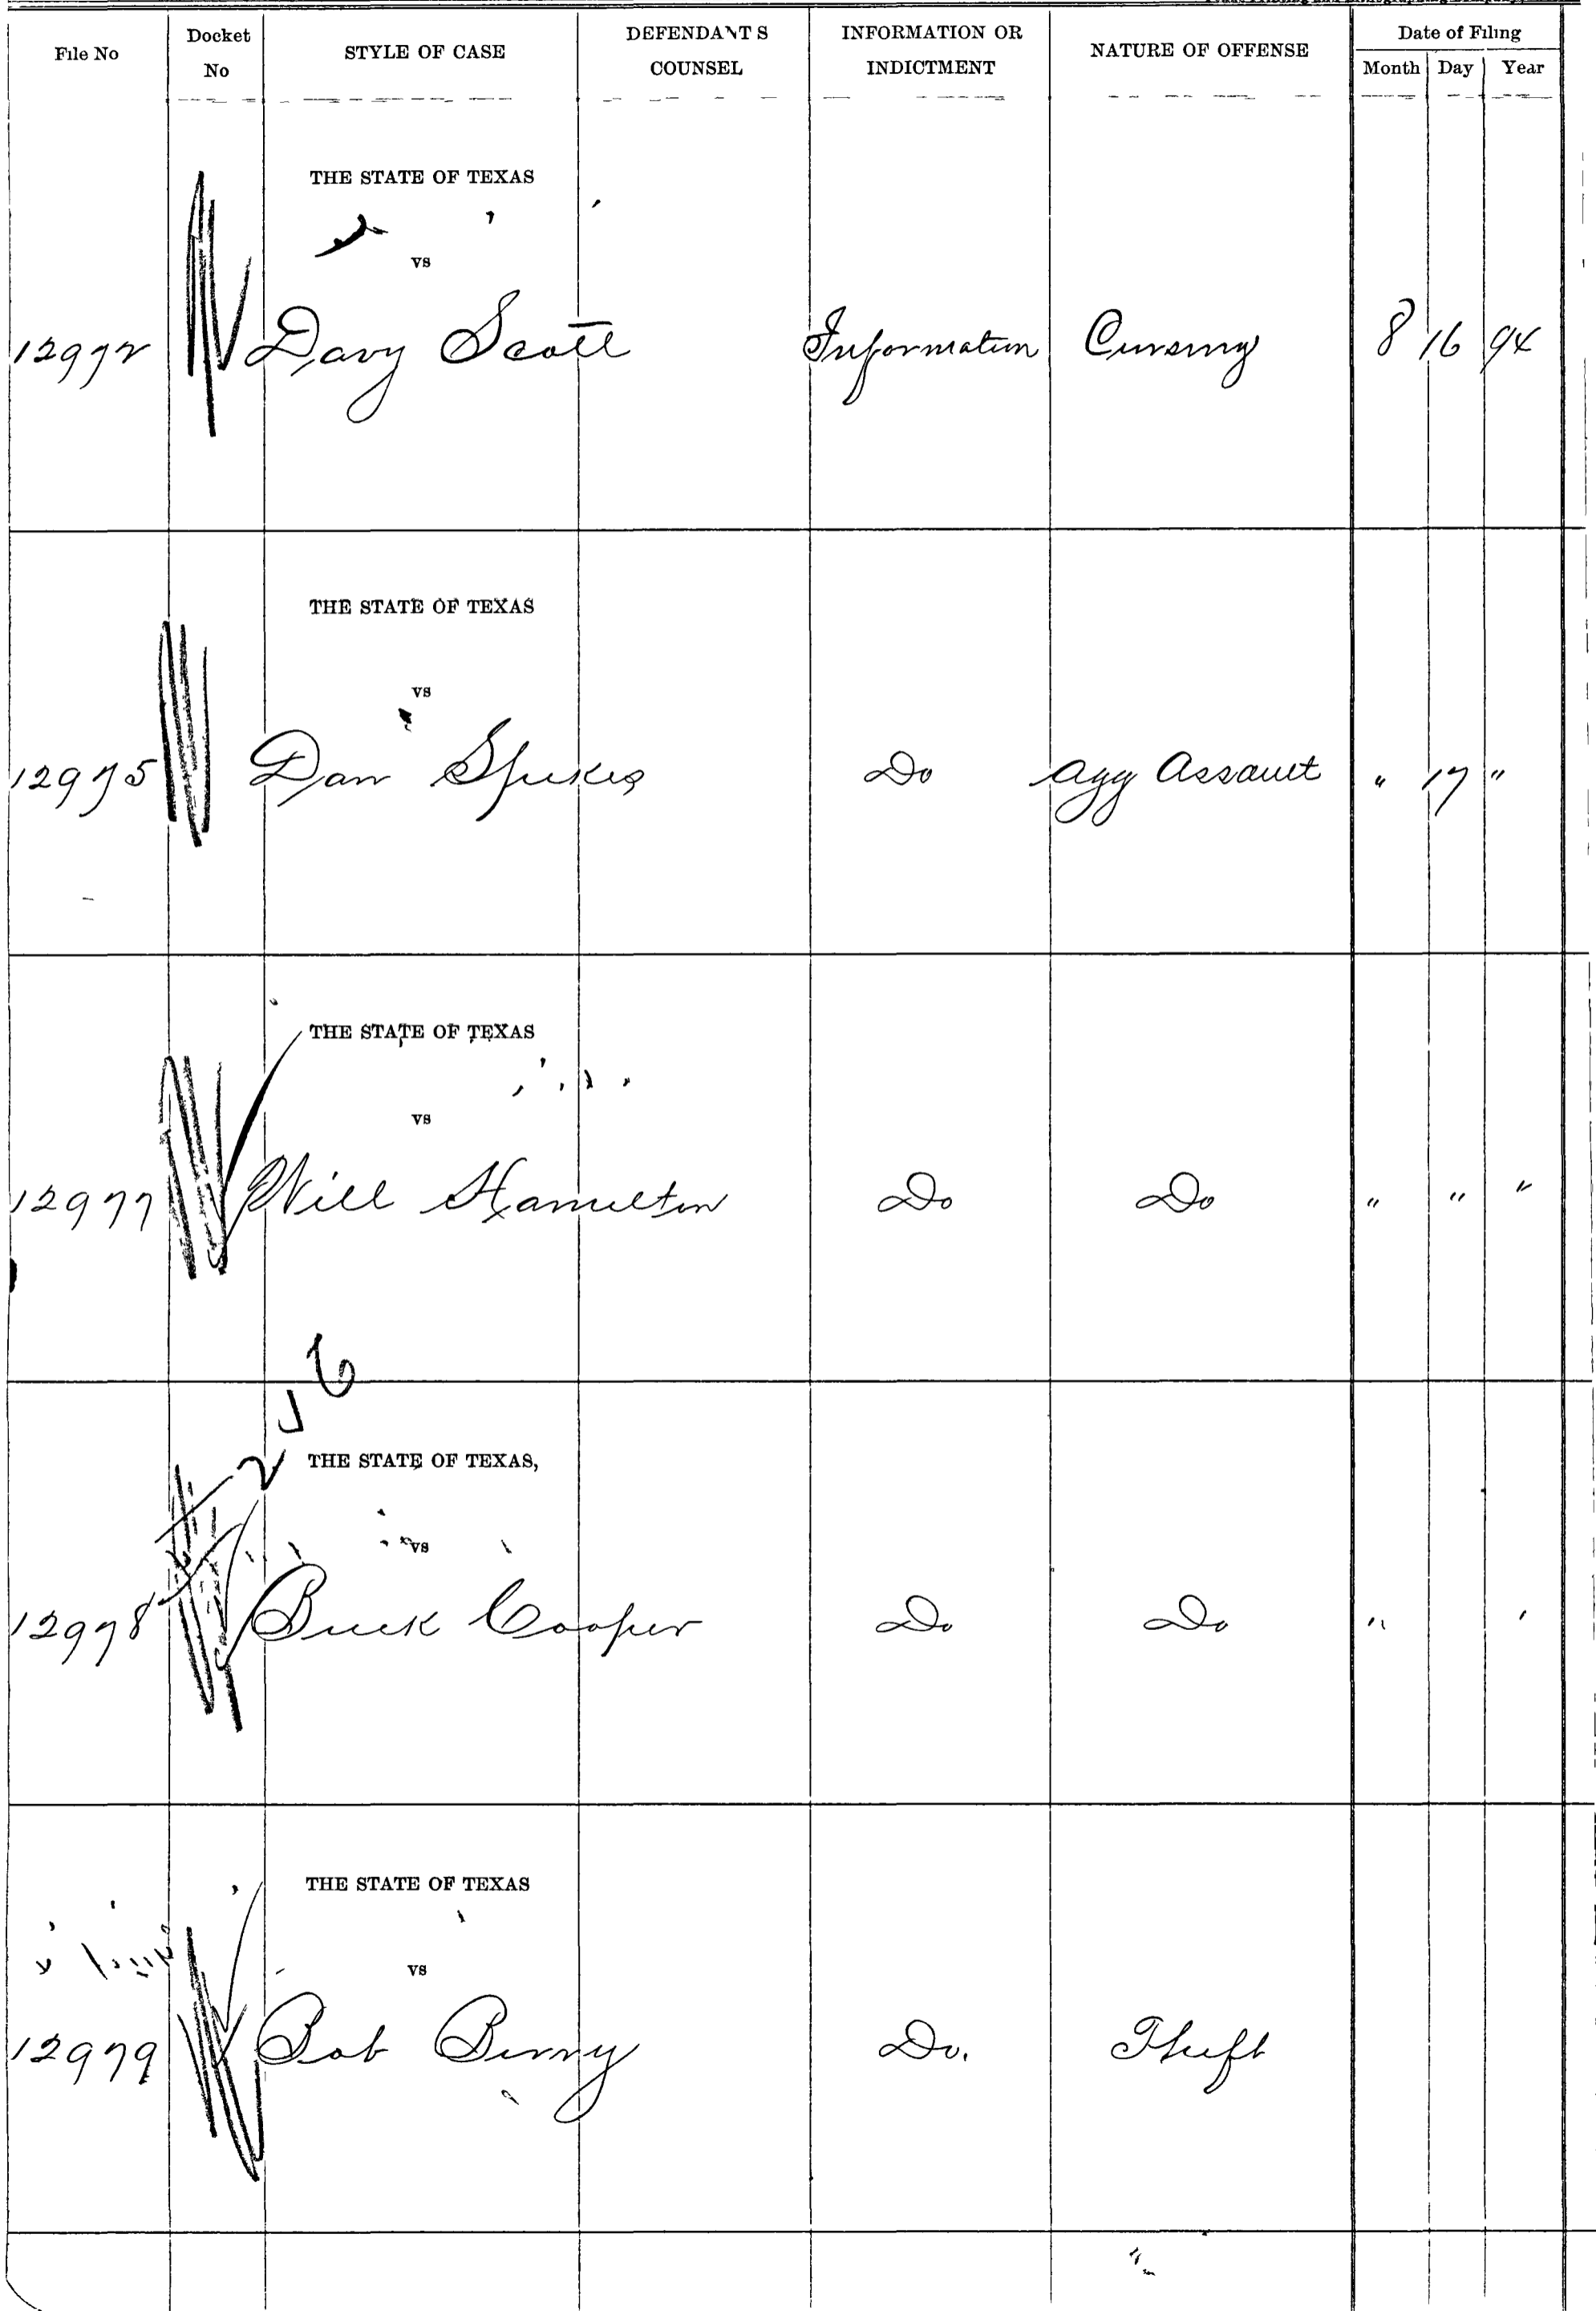 File No Docket No STYLE OF CASE DEFENDANT S COUNSEL INFORMATION OR INDICTMENT NATURE OF OFFENSE Date of Filing
Month Day Year
THE STATE OF TEXAS
vs
12972 Davy Scott Information Cursing 8 16 94
THE STATE OF TEXAS
vs
12975 Dan Spikes Do Agg Assault " 17 "
THE STATE OF TEXAS
vs
12977 Will Hamilton Do Do " " "
THE STATE OF TEXAS,
vs
12978 Buck Cooper Do Do " '
THE STATE OF TEXAS
vs
12979 Bob Berry Do. Theft